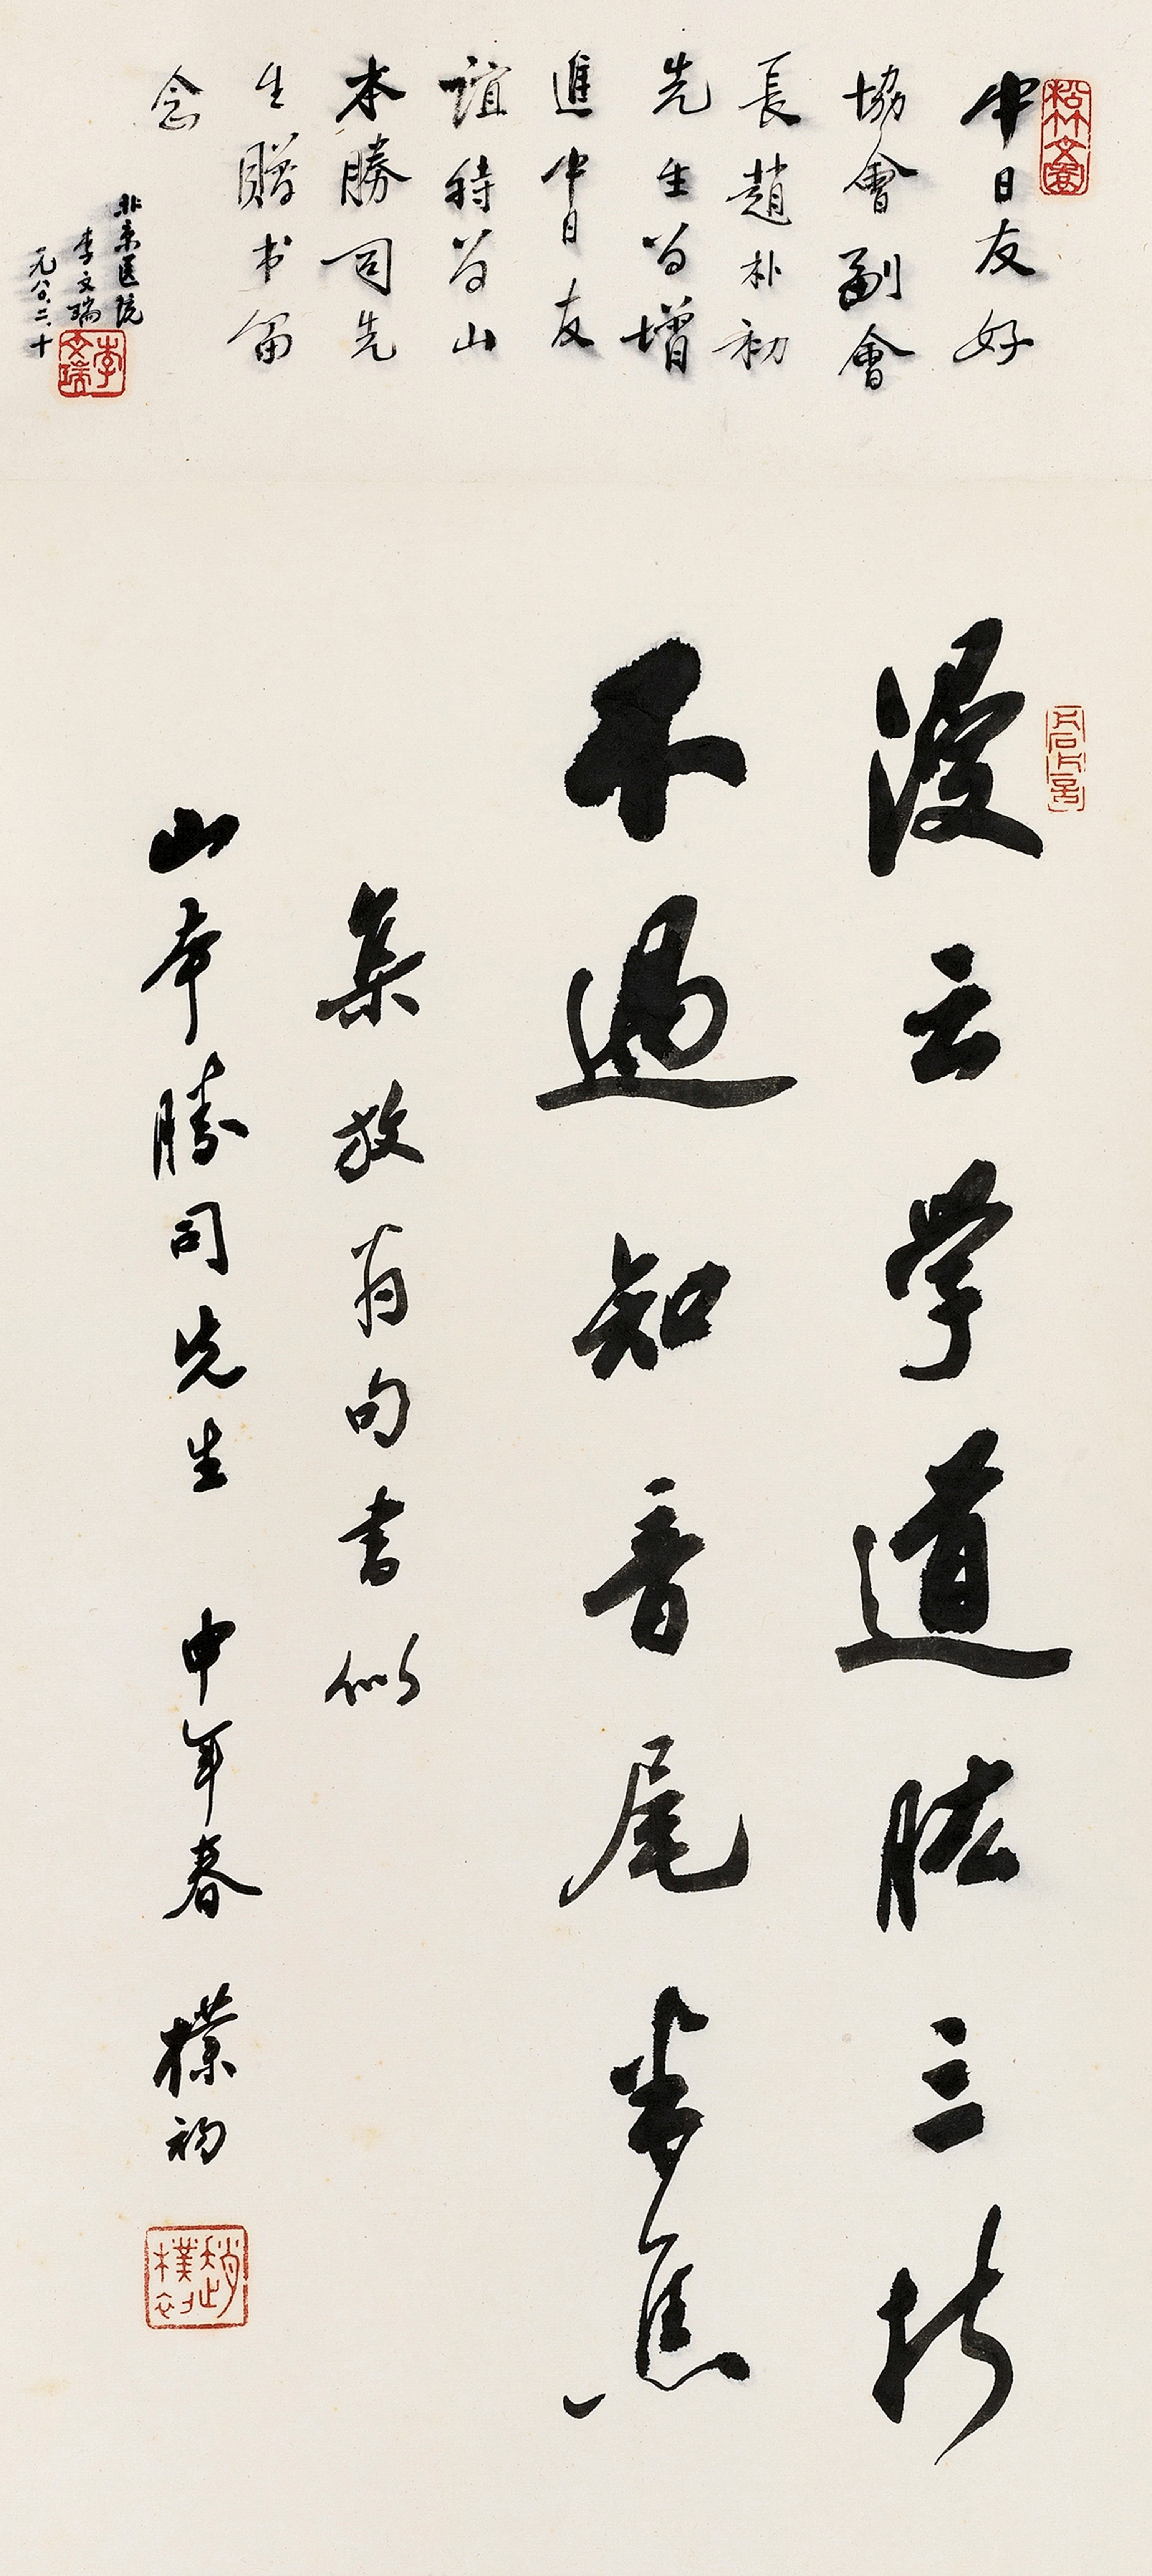 中日友好
協會副會
長趙朴初
先生为增
進中日友
誼特为山
本勝司先
生贈书留
念
北京医院
李文瑞
一九八〇.二.十
李文瑞
漫云学道肱三折
不過知音尾半焦
集放翁句書似
山本勝司先生 申年春 樸初
趙樸初